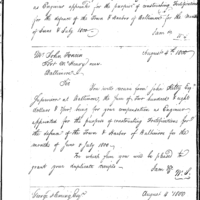 as Engineer appointed for the purpose of constructing Fortifications
for the defence of the Town & Harbor of Baltimore for the months
of June & July 1800.
I am &
Mr John Foncin
August 6th 1800
Fort McHenry near
Baltimore
Sir
You will receive from John Esqr
at Baltimore, the sum of Two Hundred eight
Dollars & being for your compensation as Engineer
appointed for the purpose of constructing Fortifications for
the defence of the Town & Harbor of Baltimore for the
months of June & July 1800.
For which sum you will be pleased to
grant your duplicate receipts.
I am Sir
August 6 1800